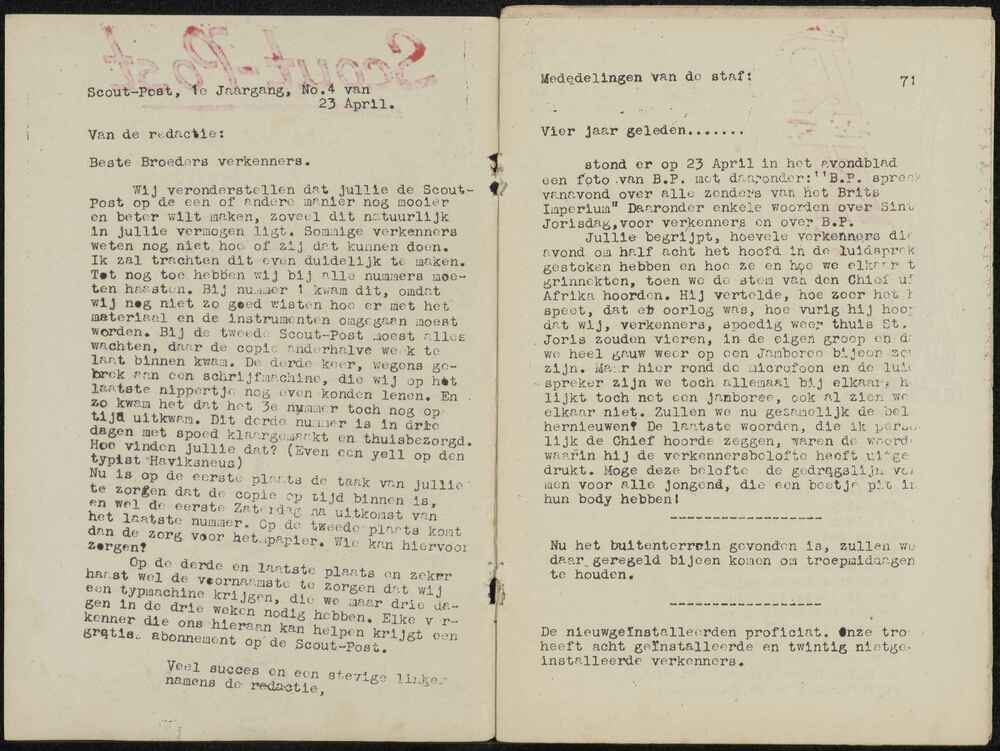 Scout-Post
Scout-Post, 1e Jaargang, No.4 van
23 April.
Van de redactie:
Beste Broeders verkenners.
Wij veronderstellen dat jullie de Scout-
Post op de een of andere manier nog mooier
en beter wilt maken, zoveel dit natuurlijk
in jullie vermogen ligt. Sommige verkenners
weten nog niet hoe of zij dat kunnen doen.
Ik zal trachten dit even duidelijk te maken.
Tot nog toe hebben wij bij alle nummers moe-
ten haasten. Bij nummer 1 kwam dit, omdat
wij nog niet zo goed wisten hoe er met het
materiaal en de instrumenten omgegaan moest
worden. Bij de tweede Scout-Post moest alles
wachten, daar de copie anderhalve week te
laat binnen kwam. De derde keer, wegens ge-
brek aan een schrijfmachine, die wij op het
laatste nippertje nog even konden lenen. En
zo kwam het dat het 3e nummer toch nog op
tijd uitkwam. Dit derde nummer is in drie
dagen met spoed klaargemaakt en thuisbezorgd.
Hoe vinden jullie dat? (Even een yell op den
typist Haviksneus)
Nu is op de eerste plaats de taak van jullie
te zorgen dat de copie op tijd binnen is,
en wel de eerste Zaterdag na uitkomst van
het laatste nummer. Op de tweede plaats komt
dan de zorg voor het papier. Wie kan hiervoor
zorgen?
Op de derde en laatste plaats en zeker
haast wel de voornaamste te zorgen dat wij
een typmachine krijgen, die we maar drie da-
gen in de drie weken nodig hebben. Elke ver-
kenner die ons hieraan kan helpen krijgt een
gratis abonnement op de Scout-Post.
Veel succes en een stevige linker
namens de redactie,
Mededelingen van de staf: 71
Vier jaar geleden.......
stond er op 23 April in het avondblad
een foto van B.P. met daaronder:"B.P. spreek
vanavond over alle zenders van het Brits
Imperium" Daaronder enkele woorden over Sint
Jorisdag,voor verkenners en over B.P.
Jullie begrijpt, hoevele verkenners die
avond om half acht het hoofd in de luidsprek
gestoken hebben en hoe ze en hoe we elkaar t
grinnekten, toen we de stem van den Chief ui
Afrika hoorden. Hij vertelde, hoe zeer het h
speet, dat er oorlog was, hoe vurig hij hoop
dat wij, verkenners, spoedig weer thuis St.
Joris zouden vieren, in de eigen groep en da
we heel gauw weer op een Jamboree bijeen zou
zijn. Maar hier rond de microfoon en de luid
spreker zijn we toch allemaal bij elkaar, h
lijkt toch net een jamboree, ook al zien we
elkaar niet. Zullen we nu gezamolijk de bel
hernieuwen? De laatste woorden, die ik perso
lijk de Chief hoorde zeggen, waren de woord
waarin hij de verkennersbelofte heeft uitge
drukt. Moge deze belofte de gedragslijn vor
men voor alle jongend, die een beetje pit in
hun body hebben!
-------------------
Nu het buitenterrein gevonden is, zullen we
daar geregeld bijeen komen om troepmiddagen
te houden.
-------------------
De nieuwgeïnstalleerden proficiat. Onze tro
heeft acht geïnstalleerde en twintig nietge-
installeerde verkenners.